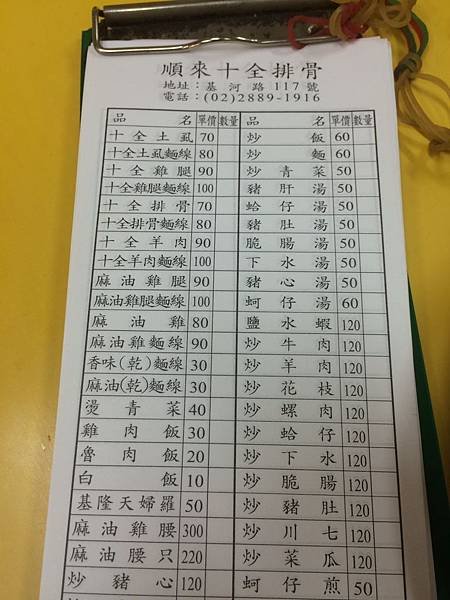 順來十全排骨
地址：基河路117號
電話：(02)2889-1916
品名 單價 數量 品名 單價 數量
十全土虱 70 炒飯 60
十全土虱麵線 80 炒麵 60
十全雞腿 90 炒青菜 50
十全雞腿麵線 100 豬肝湯 50
十全排骨 70 蛤仔湯 50
十全排骨麵線 80 豬肚湯 50
十全羊肉 90 脆腸湯 50
十全羊肉麵線 100 下水湯 50
麻油雞腿 90 豬心湯 50
麻油雞腿麵線 100 蚵仔湯 60
麻油雞 80 鹽水蝦 120
麻油雞麵線 90 炒牛肉 120
香味(乾)麵線 30 炒羊肉 120
麻油(乾)麵線 30 炒花枝 120
燙青菜 40 炒螺肉 120
雞肉飯 30 炒蛤仔 120
魯肉飯 20 炒下水 120
白飯 10 炒脆腸 120
基隆天婦羅 50 炒豬肚 120
麻油雞腰 300 炒川七 120
麻油腰只 220 炒菜瓜 120
炒豬心 120 蚵仔煎 50